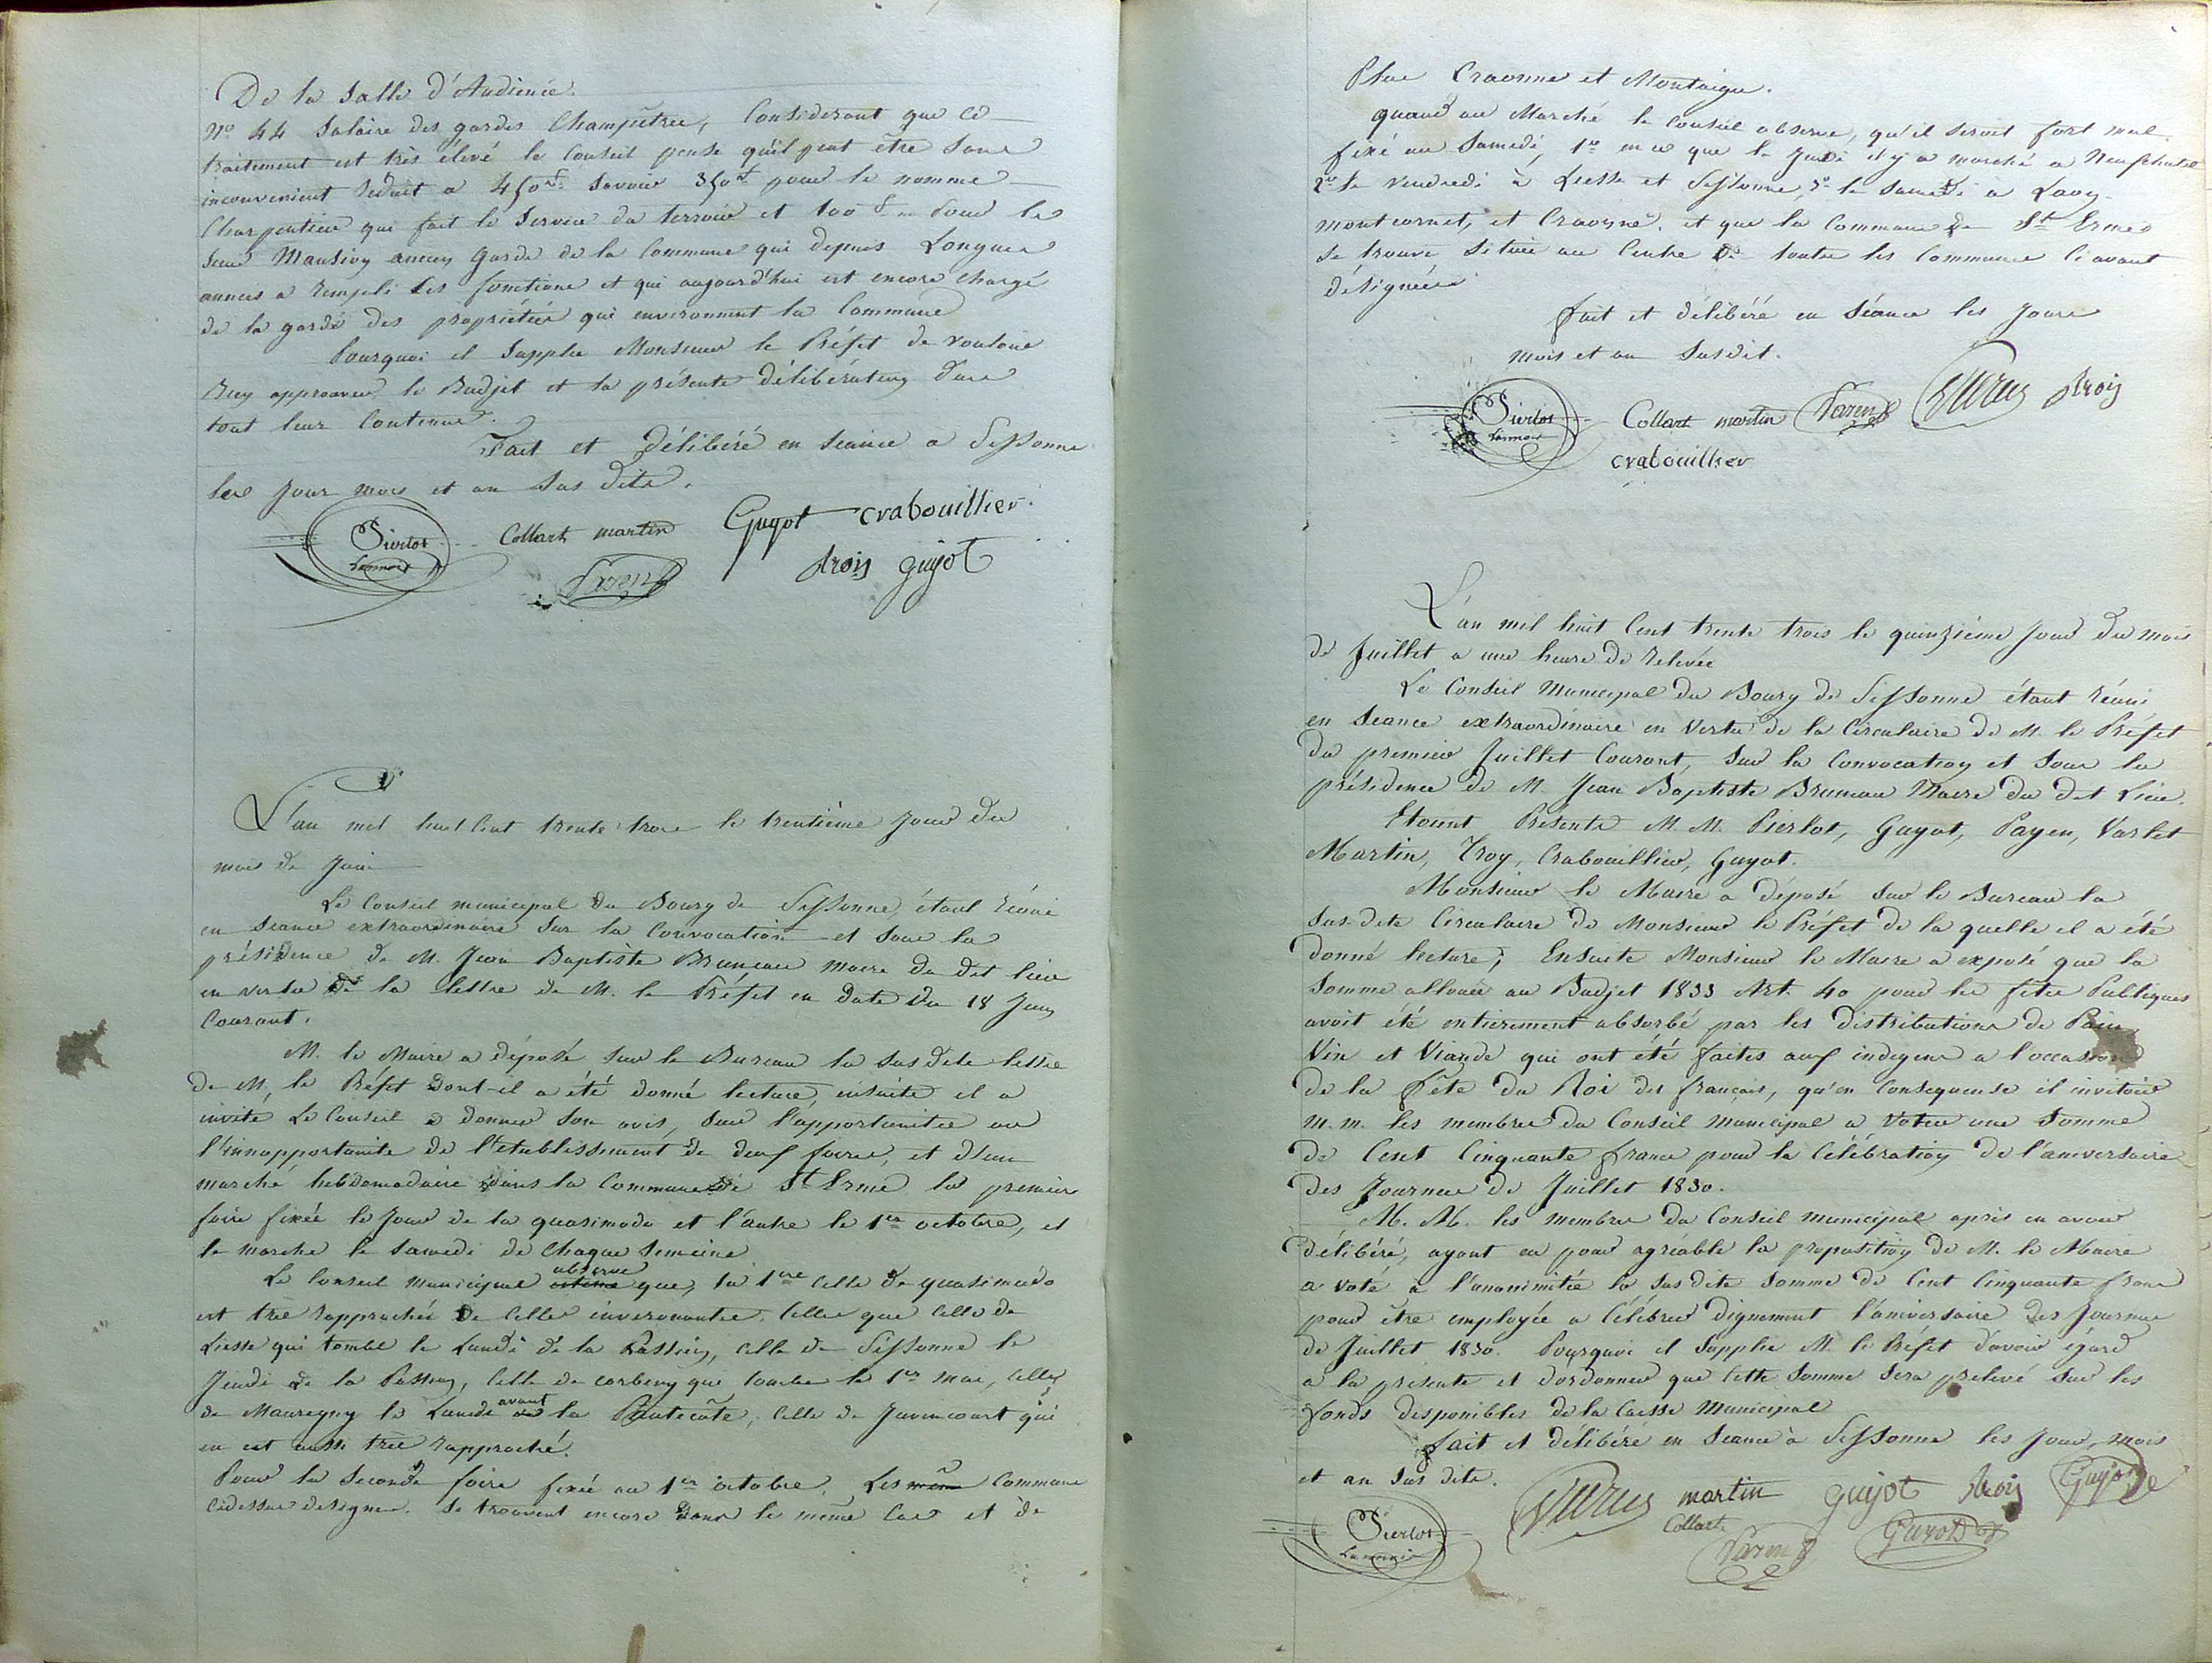 De la Salle d'Audience.
N° 44 Salaire des gardes Champêtres, Considerant que ce
traitement est très élevé le Conseil pense qu'il peut être sans
inconvenient reduit a 450f. Savoir 350f pour le nomme
Charpentier qui fait le Service du terroir et 100 f pour le
Sieur Mausivy ancien Garde de la Commune qui depuis Longues
annees a rempli les fonctions et qui aujourd'hui est encore chargé
de la garde des propriétés qui environnent la Commune
Pourquoi il Supplie Monsieur le Préfet de vouloir
Bien approuver le Budjet et la présente délibération dans
tout leur Contenu.
Fait et délibéré en Seance a Sissonne
les jour mois et an Sus dits.
Pierlot Collart martin Guyot crabouillier
Lannois Payen trois guyot
L'an mil huit Cent trente trois le trentième jour du
mois de Juin
Le Conseil municipal du Bourg de Sissonne, étant réuni
en Seance extraordinaire Sur la Convocation et Sous la
présidence de M. Jean Baptiste Bruneau maire du dit lieu
en vertu de la lettre de M. le Préfet en date du 18 Juin
Courant.
M. le Maire a déposé sur le Bureau la sus dite lettre
de M. le Préfet dont-il a été donné lecture, ensuite il a
invité Le Conseil a donner Son avis, Sur l'apportunitée ou
l'innopportunite de l'etablissement de deux foires, et d'un
marché hebdomadaire dans la Commune de St Erme la premiere
foire fixée le Jour de la quasimodo et l'autre le 1er octobre, et
le marché le Samedi de Chaque Semaine
Le Conseil municipal observe que, la 1ere Celle de quasimodo
est tres rapprochée de Celles inveronantes. Celles que Celle de
Liesse qui tombe le Lundi de la Passion, Celle de Sissonne le
Jeudi de la Passion, Celle de corbeny qui tombe le 1er mai, Celle
de Mauregny le Lundi avant la Pentecôte, Celle de Juvincourt qui
en est aussi très rapproché.
Pour la Seconde foire fixée au 1er octobre. Les même Communes
cidessus designes. Se trouvent encore dans le même Cas et de
Plus Craonne et Montaigu.
quand au Marché le Conseil observe, qu'il Seroit fort mal
fixé au Samedi, 1° en ce que le Jeudi il y a marché a Neufchatel
2° le Vendredi à Liesse et Sissonne, 3° le Samedi a Laon
montcornet, et Craonne. et que la Commune de St Erme
Se trouve Située au Centre de toutes les Communes ci avant
désignées
fait et délibéré en Séance les Jours
mois et an Susdit.
Pierlot Collart martin Payen Varlet trois
Lannois crabouillier
L'an mil huit Cent trente trois le quinzième jour du mois
de Juillet a une heure de relevée
Le Conseil Municipal du Bourg de Sissonne étant réuni
en Seance extraordinaire en Vertu de la Circulaire de M. le Préfet
du premier Juillet Courant, Sur la Convocation et Sous la
présidence de M. Jean Baptiste Bruneau Maire du dit Lieu.
Etoient Présents M. M. Pierlot, Guyot, Payen, Varlet
Martin, Troy, Crabouillier, Guyot.
Monsieur le Maire a déposé Sur le Bureau la
Sus-dite Circulaire de Monsieur le Préfet de la quelle il a été
donné lecture; Ensuite Monsieur le Maire a exposé que la
Somme allouée au Budjet 1833 Art. 40 pour les fêtes Publiques
avoit été entierement absorbé par les distributions de Pain
Vin et Viande qui ont été faites aux indigens a l'occasion
de la Fête du Roi des français, qu'en Consequense il invitoit
m. m. les membres du Conseil Municipal a Voter une Somme
de Cent Cinquante francs pour la Célébration de l'aniversaire
des Journees de Juillet 1830.
M. M. les membres du Conseil municipal après en avoir
délibéré, ayant eu pour agréable la proposition de M. le Maire
a voté a l'unanimitée la Sus dite Somme de Cent Cinquante francs
pour être employée a Célébrer dignement l'aniversaire des Journees
de Juillet 1830. Pourquoi il Supplie M. le Préfet d'avoir égard
a la présente et d'ordonner que Cette Somme Sera prelevé sur les
fonds disponibles de la Caisse Municipal
fait et délibéré en Seance à Sissonne les jour, mois
et an Sus dits.
Pierlot Varlet martin guyot trois Guyot
Lannois Collart Payen Guyot